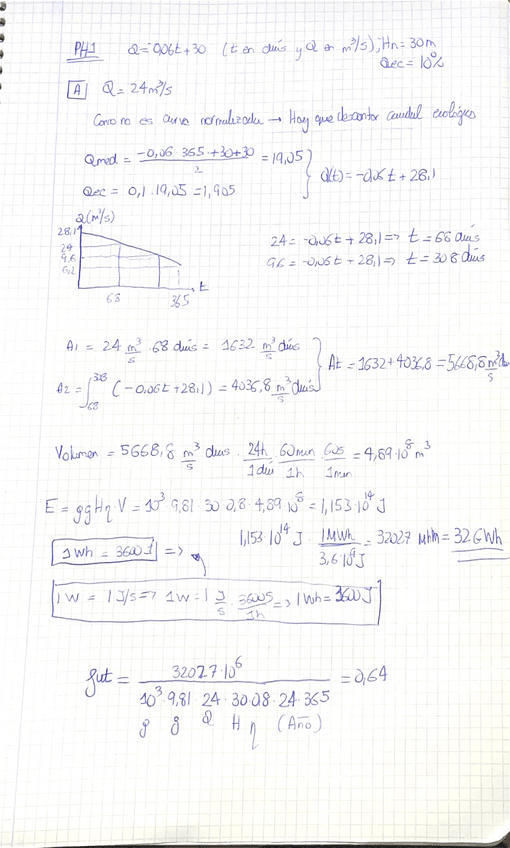 PH1 Q=-0,06t+30 (t en días y Q en m³/s); Hn=30m
Qec=10%
A Q=24m³/s
Como no es curva normalizada → Hay que descontar caudal ecológico
Qmed = (-0,06·365+30+30)/2 = 19,05
Qec = 0,1·19,05=1,905
Q(t)=-0,06t+28,1
Q(m³/s)
28,1
24
9,6
6,2
68 365 t
24=-0,06t+28,1=> t=68 días
9,6=-0,06t+28,1=> t=308 días
A1 = 24 m³/s · 68 días = 1632 m³/s días
A2=∫₆₈³⁰⁸(-0,06t+28,1)=4036,8 m³/s días
At=1632+4036,8=5668,8 m³/s
Volumen = 5668,8 m³/s días · 24h/1día · 60min/1h · 60s/1min = 4,89·10⁸ m³
E = ρgHη·V = 10³·9,81·30·0,8·4,89·10⁸=1,153·10¹⁴J
1,153·10¹⁴J · 1MWh/3,6·10⁹J = 32027 MWh = 32GWh
1Wh = 3600J =>
1W = 1J/s=> 1W=1 J/s · 3600s/1h => 1Wh=3600J
fut = 32027·10⁶/(10³·9,81·24·30·0,8·24·365) = 0,64
ρ g Q H η (Año)